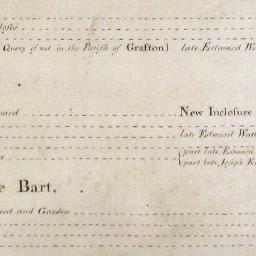 Query if not in the Parish of Grafton) late Edward Wa
New Inclosure
late Edward Wat
(part late Edward
part late Joseph K
e Bart.
and Garden